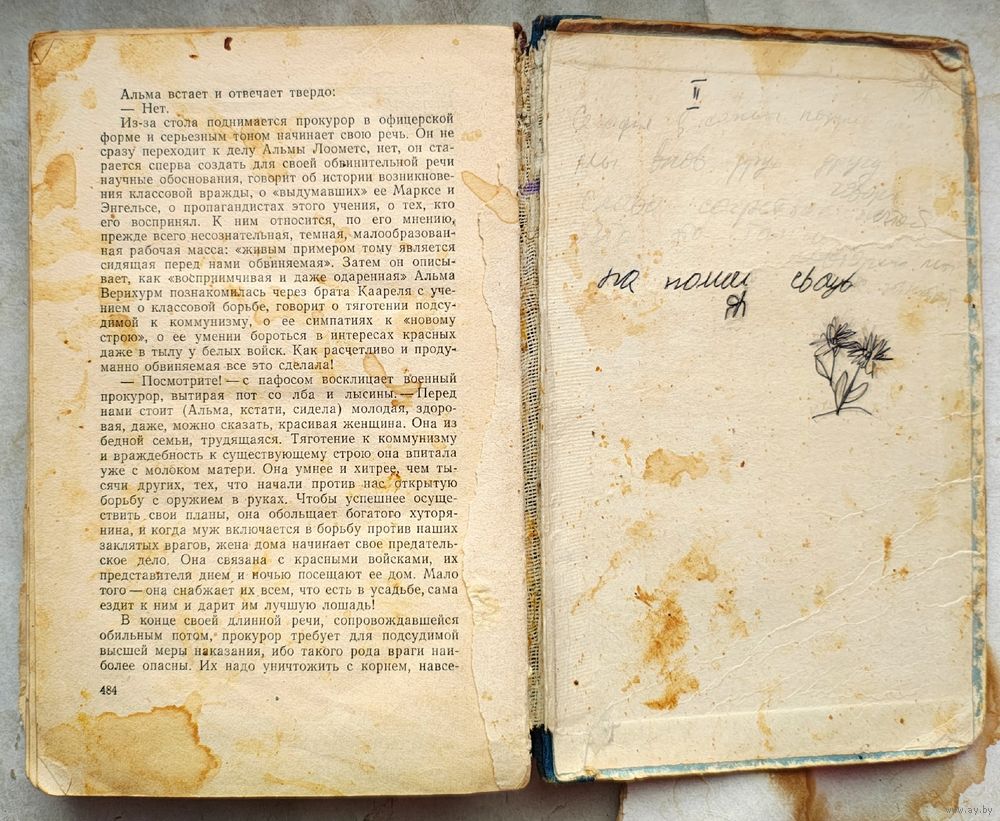 Альма встает и отвечает твердо:
— Нет.
Из-за стола поднимается прокурор в офицерской
форме и серьезным тоном начинает свою речь. Он не
сразу переходит к делу Альмы Лоометс, нет, он ста-
рается сперва создать для своей обвинительной речи
научные обоснования, говорит об истории возникнове-
ния классовой вражды, о «выдумавших» ее Марксе и
Энгельсе, о пропагандистах этого учения, о тех, кто
его воспринял. К ним относится, по его мнению,
прежде всего несознательная, темная, малообразован-
ная рабочая масса: «живым примером тому является
сидящая перед нами обвиняемая». Затем он описы-
вает, как «восприимчивая и даже одаренная» Альма
Верихурм познакомилась через брата Каареля с уче-
нием о классовой борьбе, говорит о тяготении подсу-
димой к коммунизму, о ее симпатиях к «новому
строю», о ее умении бороться в интересах красных
даже в тылу у белых войск. Как расчетливо и проду-
манно обвиняемая все это сделала!
— Посмотрите! — с пафосом восклицает военный
прокурор, вытирая пот со лба и лысины. — Перед
нами стоит (Альма, кстати, сидела) молодая, здоро-
вая, даже, можно сказать, красивая женщина. Она из
бедной семьи, трудящаяся. Тяготение к коммунизму
и враждебность к существующему строю она впитала
уже с молоком матери. Она умнее и хитрее, чем ты-
сячи других, тех, что начали против нас открытую
борьбу с оружием в руках. Чтобы успешнее осуще-
ствить свои планы, она обольщает богатого хуторя-
нина, и когда муж включается в борьбу против наших
заклятых врагов, жена дома начинает свое предатель-
ское дело. Она связана с красными войсками, их
представители днем и ночью посещают ее дом. Мало
того — она снабжает их всем, что есть в усадьбе, сама
ездит к ним и дарит им лучшую лошадь!
В конце своей длинной речи, сопровождавшейся
обильным потом, прокурор требует для подсудимой
высшей меры наказания, ибо такого рода враги наи-
более опасны. Их надо уничтожить с корнем, навсе-
484
II
на
www.ay.by